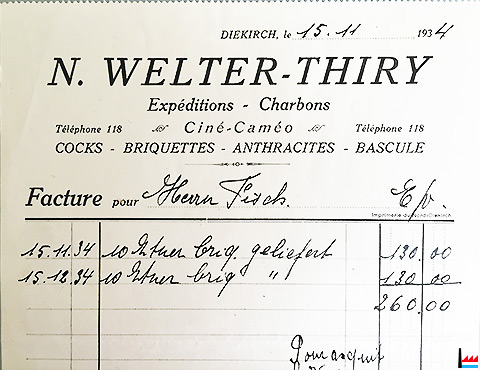 DIEKIRCH, le 15.11 1934
N. WELTER-THIRY
Expéditions - Charbons
Téléphone 118 Ciné-Caméo Téléphone 118
COCKS - BRIQUETTES - ANTHRACITES - BASCULE
Facture pour Herrn Fisch. E/v.
Imprimerie du Nord-Diekirch
15.11.34 10 Ztner briq. geliefert 130.00
15.12.34 10 Ztner briq " 130.00
260.00
Pour acquit